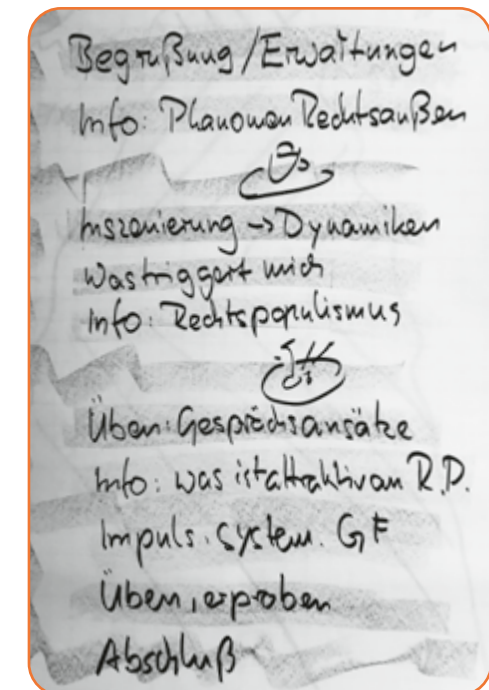 Begrüßung / Erwartungen
Info: Phänomen Rechtsaußen
Inszenierung -> Dynamiken
Was triggert mich
Info: Rechtspopulismus
Üben: Gesprächsansätze
Info: was ist attraktiv an R.D.
Impuls: System. GF
Üben, erproben
Abschluß